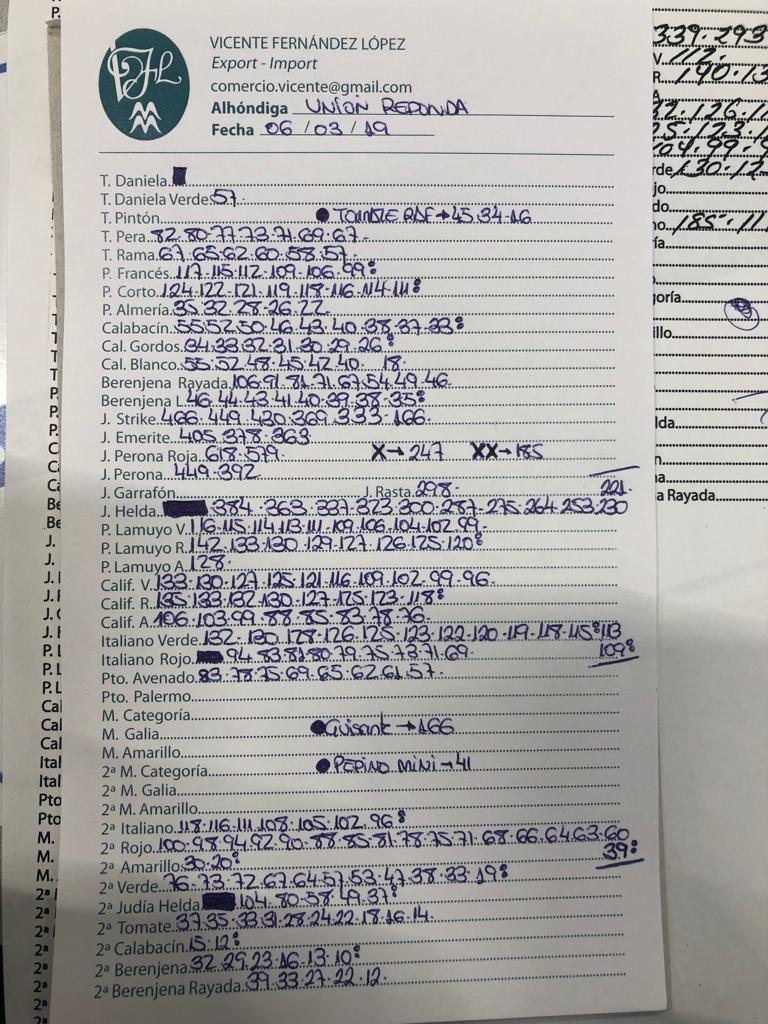 VICENTE FERNÁNDEZ LÓPEZ
Export - Import
comercio.vicente@gmail.com
Alhóndiga UNION REDONDA
Fecha 06/03/19
T. Daniela
T. Daniela Verde 57.
T. Pintón ● TOMATE RAF→45.34.16
T. Pera 82.80.77.73.71.69.67.
T. Rama 67.65.62.60.58.57.
P. Francés 117.115.112.109.106.99:
P. Corto 124.122.121.119.118.116.114.111:
P. Almería 35.32.28.26.22.
Calabacín 55.52.50.46.43.40.38.37.33:
Cal. Gordos 34.33.32.31.30.29.26:
Cal. Blanco 55.52.48.45.42.40. 18.
Berenjena Rayada 106.91.81.71.67.54.49.46.
Berenjena L 46.44.43.41.40.39.38.35:
J. Strike 466.449.430.369.333.166.
J. Emerite 405.378.363
J. Perona Roja 618.579. X→247 XX→185
J. Perona 449.392
J. Garrafón J. Rasta 298. 221.
J. Helda 384.363.337.323.300.287.275.264.253.230
P. Lamuyo V. 116.115.114.113.111.109.106.104.102.99.
P. Lamuyo R. 142.133.130.129.127.126.125.120:
P. Lamuyo A. 128.
Calif. V. 133.130.127.125.121.116.109.102.99.96.
Calif. R. 135.133.132.130.127.125.123.118:
Calif. A. 106.103.99.88.85.83.78.76.
Italiano Verde 132.130.128.126.125.123.122.120.119.118.115:113
Italiano Rojo 94.83.81.80.79.75.73.71.69. 109:
Pto. Avenado 83.78.75.69.65.62.61.57.
Pto. Palermo
M. Categoría
M. Galia ● Guisante→166
M. Amarillo
2ª M. Categoría ● PEPINO MINI→41
2ª M. Galia
2ª M. Amarillo
2ª Italiano 118.116.111.108.105.102.96:
2ª Rojo 100.98.94.92.90.88.85.81.78.75.71.68.66.64.63.60
2ª Amarillo 30.20: 39:
2ª Verde 76.73.72.67.64.57.53.47.38.33.19:
2ª Judía Helda 104.80.58.49.37:
2ª Tomate 37.35.33.31.28.24.22.18.16.14.
2ª Calabacín 15.12:
2ª Berenjena 32.29.23.16.13.10:
2ª Berenjena Rayada 39.33.27.22.12.